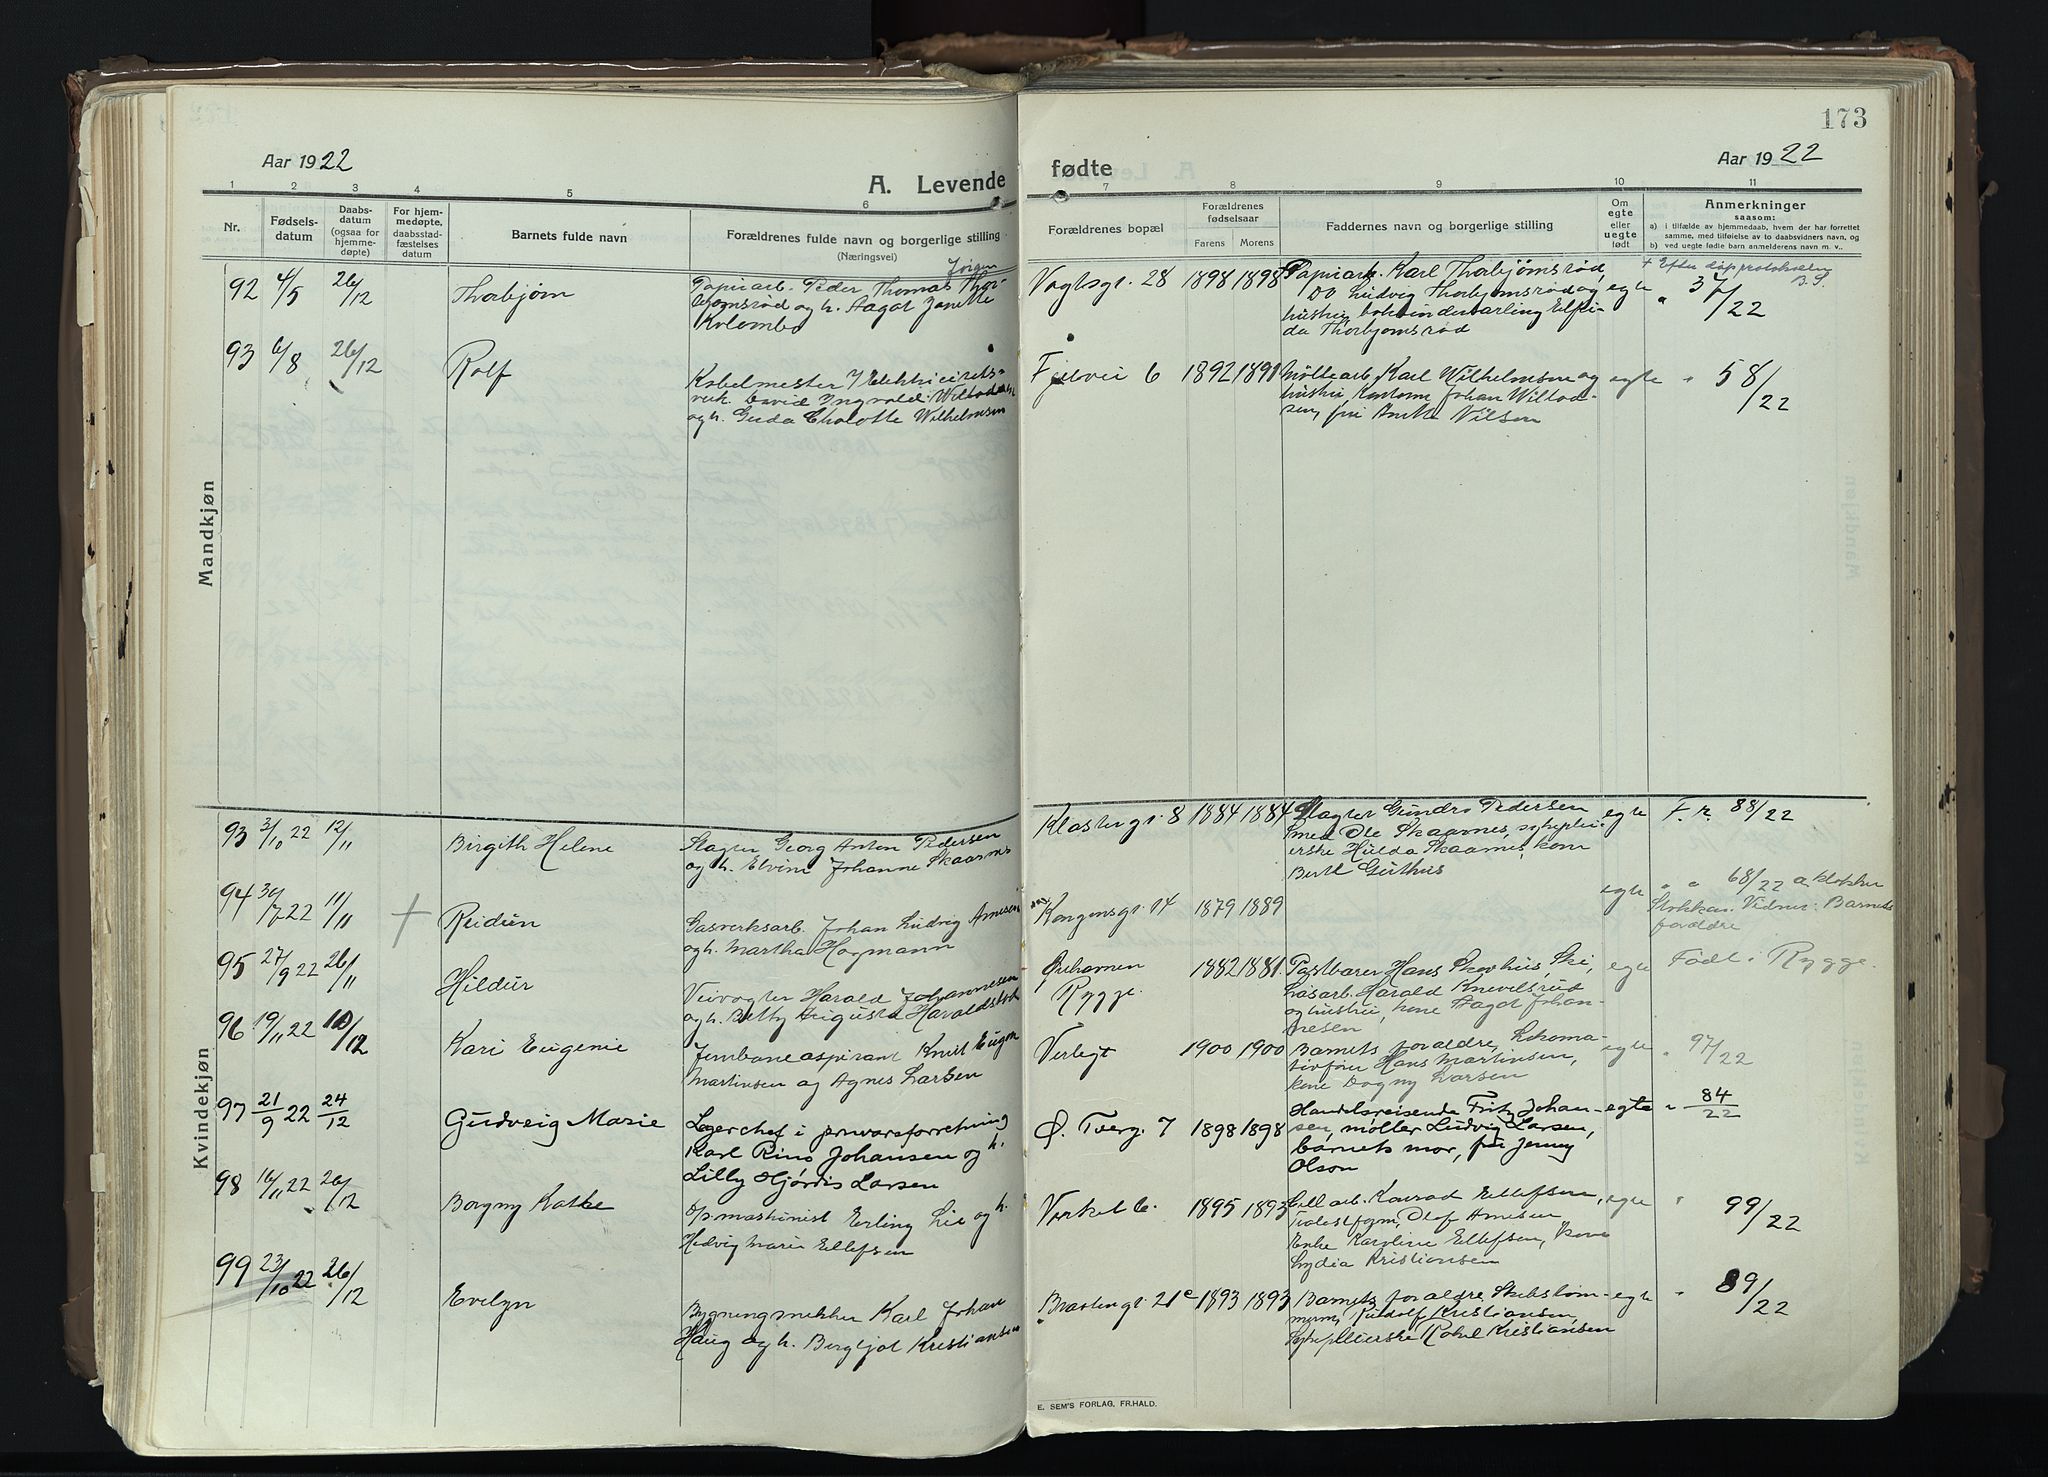 173
Aar 1922
A. Levende
fødte
Aar 1922
1 2 3 4 5 6 7 8 9 10 11
Nr.
Fødsels-
datum
Daabs-
datum
(ogsaa for
hjemme-
døpte)
For hjem-
medøpte,
daabsstad-
fæstelses
datum
Barnets fulde navn
Forældrenes fulde navn og borgerlige stilling
(Næringsvei)
Forældrenes bopæl
Forældrenes
fødselsaar
Farens Morens
Faddernes navn og borgerlige stilling
Om
egte
eller
uegte
født
Anmerkninger
saasom:
a) i tilfælde av hjemmedaab, hvem der har forrettet
samme, med tilføielse av to daabsvidners navn, og
b) ved uegte fødte barn anmelderens navn m. v..
Mandkjøn
92 4/5 26/12 Thorbjørn
Jørgen
Papirarb. Peder Thomas Thor-
bjørnsrød og h. Aagot Janette
Kolombo
Vogtsgt. 28 1898 1898
Papirarb. Karl Thorbjørnsrød,
Do Ludvig Thorbjørnsrød og
hustru, bokbinderlærling Elfri-
da Thorbjørnsrød
egte
+ Efter døpprotokollen
B.S.
" 37/22
93 6/8 26/12 Rolf
Kabelmester v/ Elektricitets-
verk. David Ingvald
og h. Gerda Charlotte Wilhelmsen
6 1892 1891
Møllearb. Karl Wilhelmsen og
hustru, Johan
sen, frk Nilsen
egte " 58/22
Kvindekjøn
93 3/10 22 12/11 Birgith Helene
Slagter Georg Anton Pedersen
og h. Elvine Johanne Skaarnes
Klostergt. 8 1884 1884
Slagter Pedersen
smed Ole Skaarnes, syerske Hulda Skaarnes, kone
Berte
egte F. r. 88/22
94 30/7 22 11/11 + Reidun
Gasverksarb. Johan Ludvig Arnesen
og h. Martha Hagmann
Kongensgt. 14 1879 1889
egte " " 68/22 a klokker
Vidner: Barnets
forældre
95 27/9 22 26/11 Hildur
Veivogter Harald Johannesen
og h. Betty Augusta Haraldstad
Ørehavnen
Rygge
1882 1881
Postbærer Hans Skovhus, Ski,
Løsarb. Harald Knevelsrud
og hustru, kone Aagot Johan-
nesen
egte Født i Rygge.
96 19/11 22 10/12 Kari Eugenie
Jernbaneaspirant Knut Eugen
Martinsen og Agnes Larsen
Verlegt 1900 1900
Barnets forældre, Lokomo-
tivfører Hans Martinsen,
kone Dagny Larsen
egte " 97/22
97 21/9 22 24/12 Gudveig Marie
Lagerchef i jernvareforretning
Karl Rino Johansen og h.
Lilly Hjørdis Larsen
Ø. Tverg. 7 1898 1898
Handelsreisende Fritz Johan-
sen, møller Ludvig Larsen,
barnets mor, frk Jenny
Olson
egte " 84/22
98 16/11 22 26/12 Borgny Kathe
D/S maskinist Erling Lie og h.
Hedvig Marie Ellefsen
Værket 6. 1895 1893
Cell arb. Konrad Ellefsen,
Olaf Arnesen
Enke Karoline Ellefsen, kone
Lydia Kristiansen
egte " 99/22
99 23/10 22 26/12 Evelyn
Bygningssnekker Karl Johan
Haug og h. Bergljot Kristiansen
21c 1893 1893
Barnets forældre, Skibstøm-
merm, Rudolf Kristiansen,
Rakel Kristiansen
egte " 89/22
E. SEM'S FORLAG, FR.HALD.